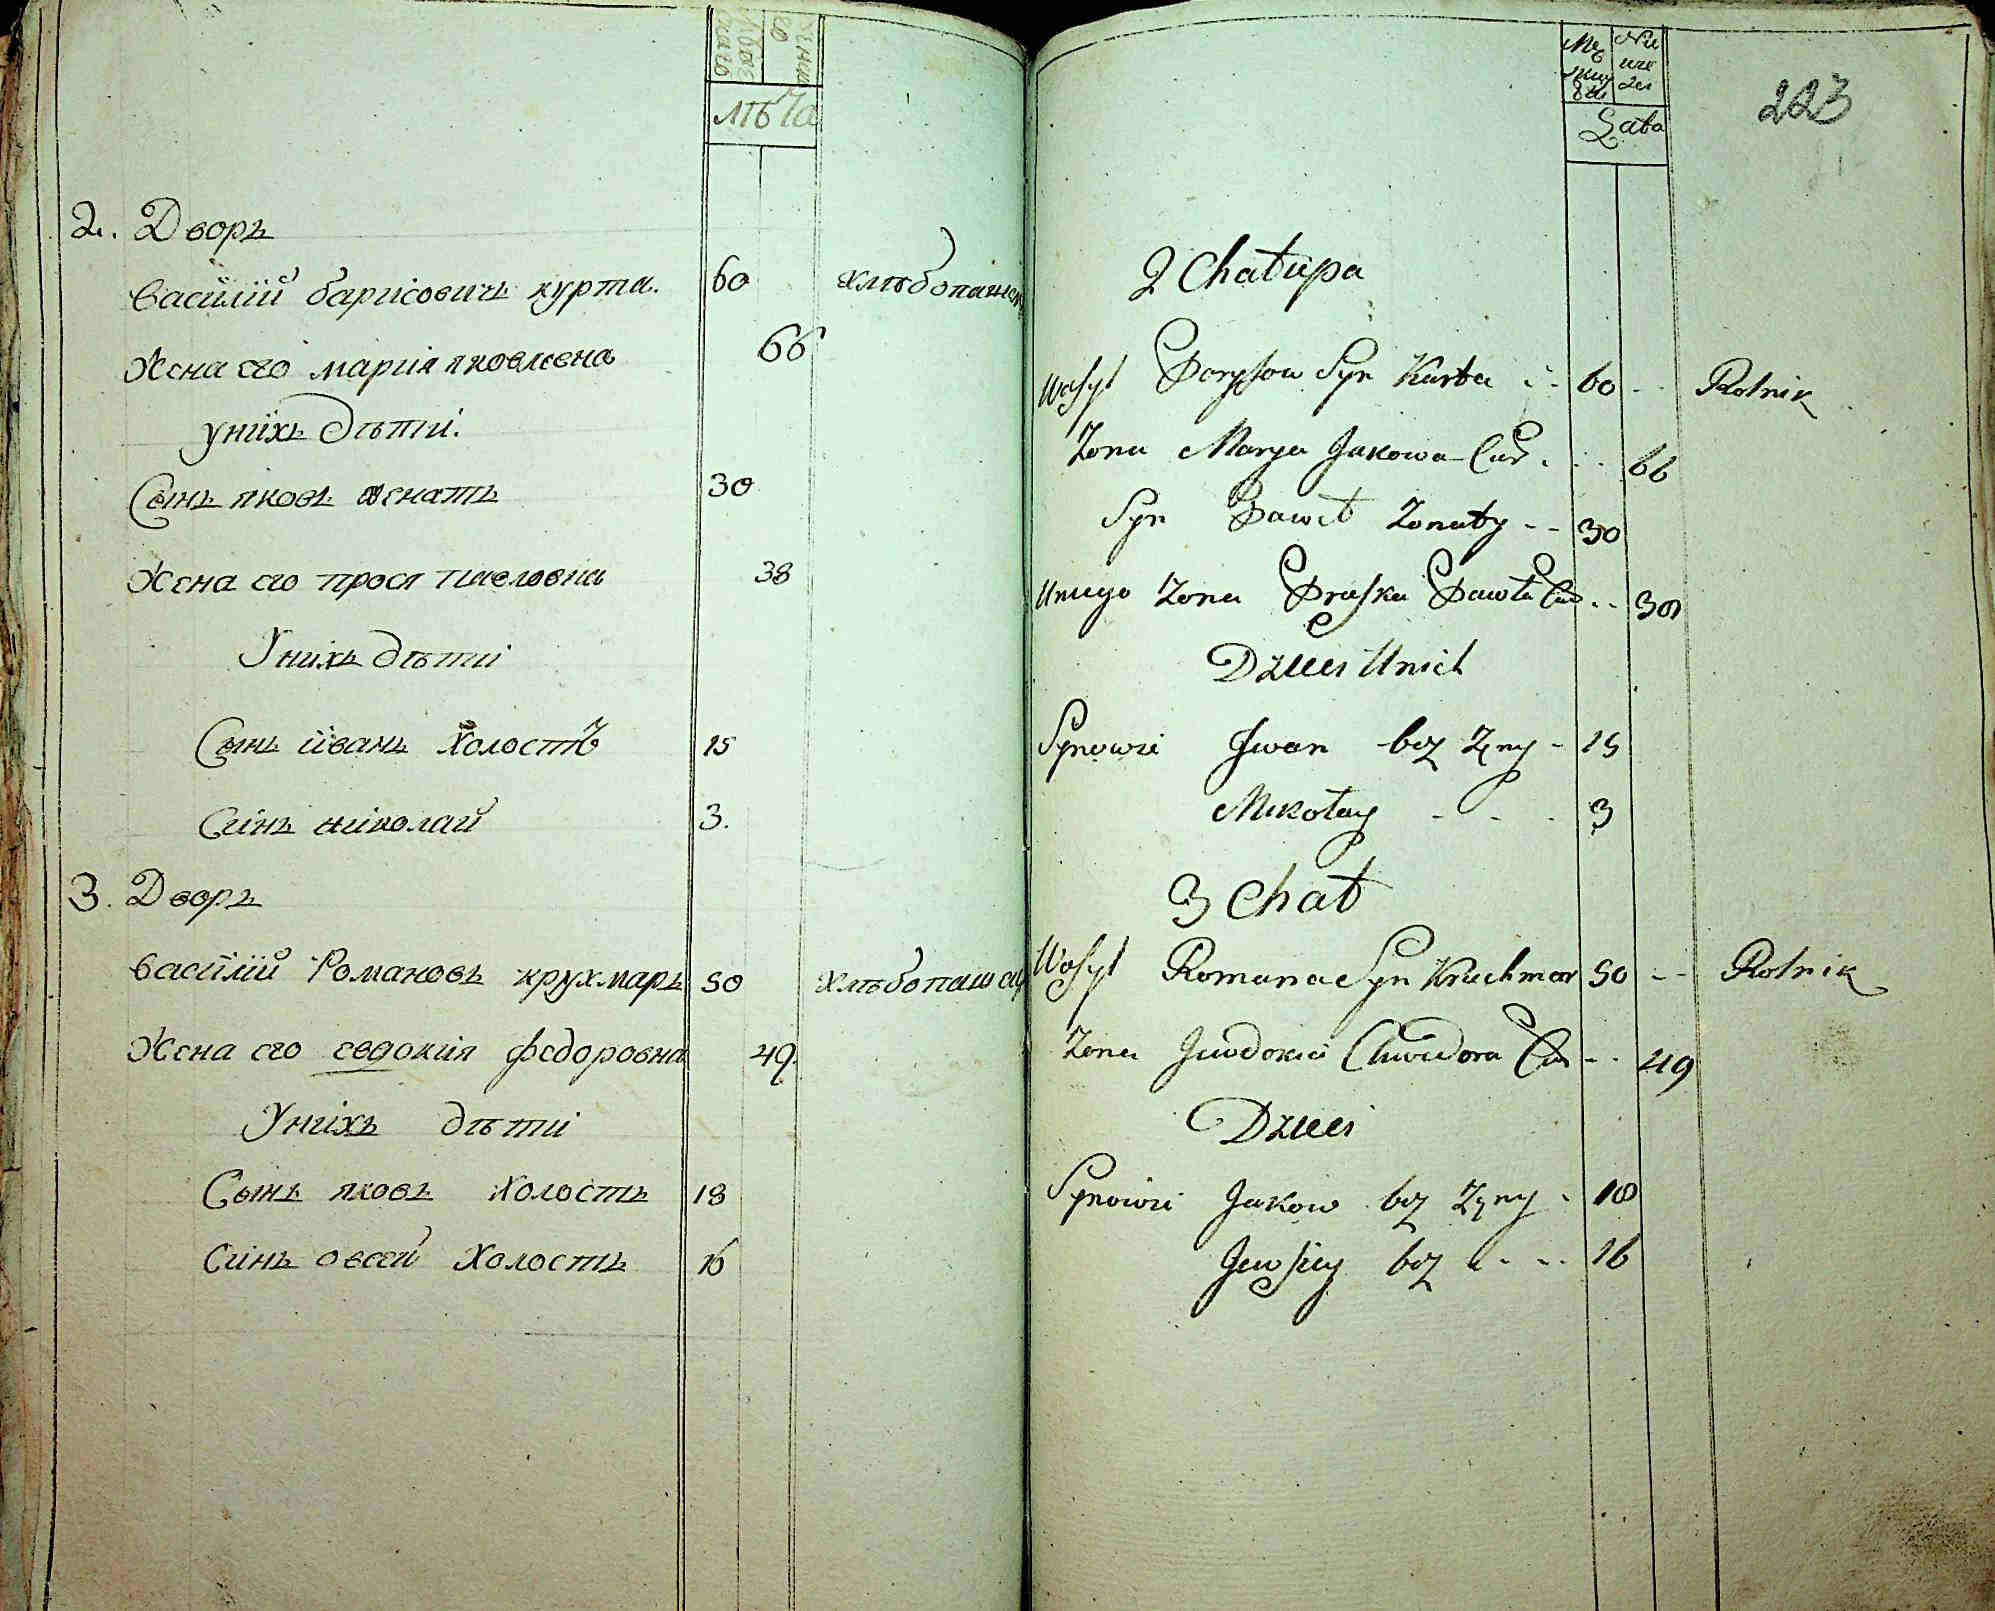 мужеска го
женска го
лѣта
2. Дворъ
василій барисовичъ курта. 60 хлѣбопашецъ
Жена его марія яковлевна 66
унихъ дѣти.
Сынъ яковъ женатъ 30
Жена его прося павловна 38
Унихъ дѣти
Сынъ иванъ холостъ 15
Синъ николай 3.
3. Дворъ
василій Романовъ крухмаръ 50 хлѣбопашецъ
Жена его евдокия федоровна 49
Унихъ дѣти
Сынъ яковъ холостъ 18
Синъ овсей холостъ 16
Lata
223
2 Chałupa
Wasyl Borysow Syn Kurta 60 -- Rolnik
Zona Marya Jakowa Cur. 66
Syn Paweł Zonaty -- 30
Uniego Zona Praska Pawła Cur .. 38
Dzieci Unich
Synowie Jwan bez Zęny - 15
Mikołay - - - 3
3 Chał
Wasyl Romana Syn Kruchmar 50 -- Rolnik
Zona Jewdokia Chwedora Cur -- 49
Dzieci
Synowie Jakow bez Zęny - 18
Jewsiey bez - - - 16